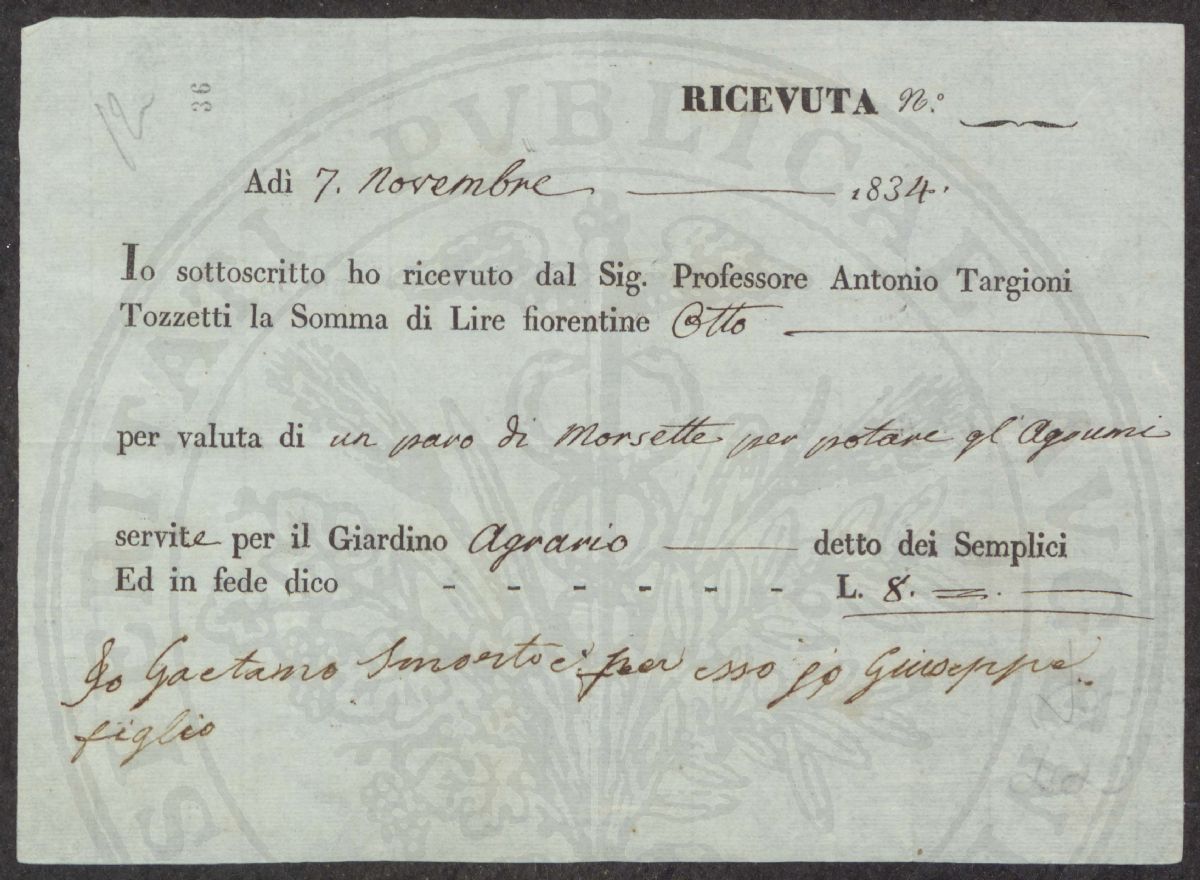 12
36
RICEVUTA N.º
Adì 7. Novembre 1834.
Io sottoscritto ho ricevuto dal Sig. Professore Antonio Targioni
Tozzetti la Somma di Lire fiorentine Otto
per valuta di un paro di Morsette per potare gl'Agrumi
servite per il Giardino Agrario detto dei Semplici
Ed in fede dico - - - - - - L. 8. =.
Io Gaetano per esso io Giuseppe
figlio